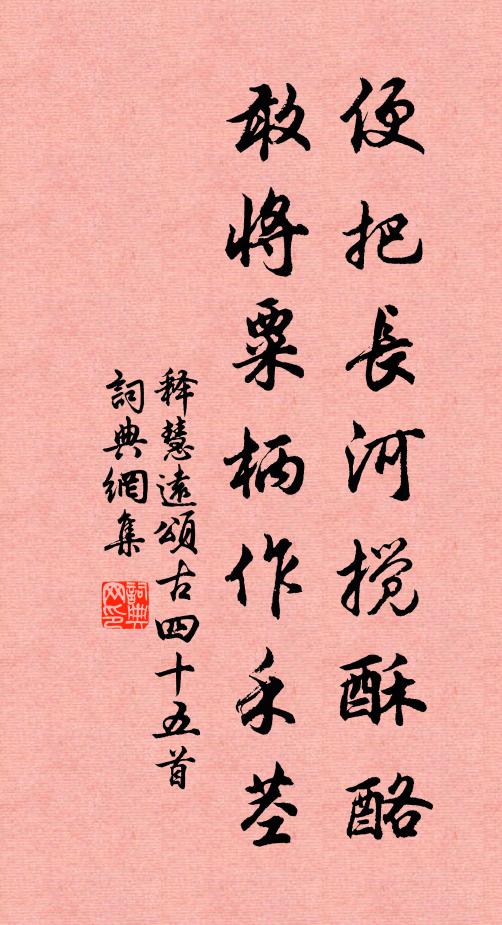 便把長河攪酥酪
敢將粟柄作禾莖
释慧遠頌古四十五首
詞典網集
詞典
网印